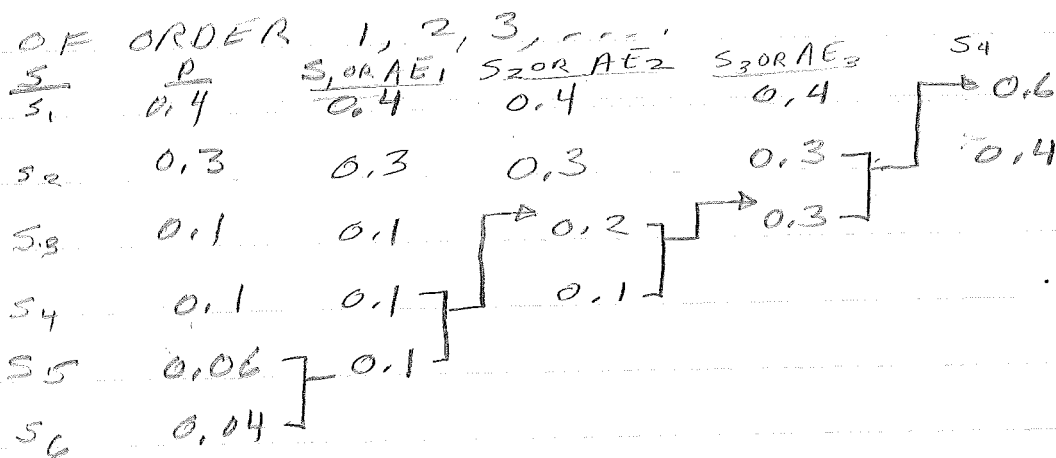 OF ORDER 1, 2, 3, ....
S P S, OR AE1 S2 OR AE2 S3 OR AE3 S4
S1 0.4 0.4 0.4 0.4 0.6
S2 0.3 0.3 0.3 0.3 0.4
S3 0.1 0.1 0.2 0.3
S4 0.1 0.1 0.1
S5 0.06 0.1
S6 0.04